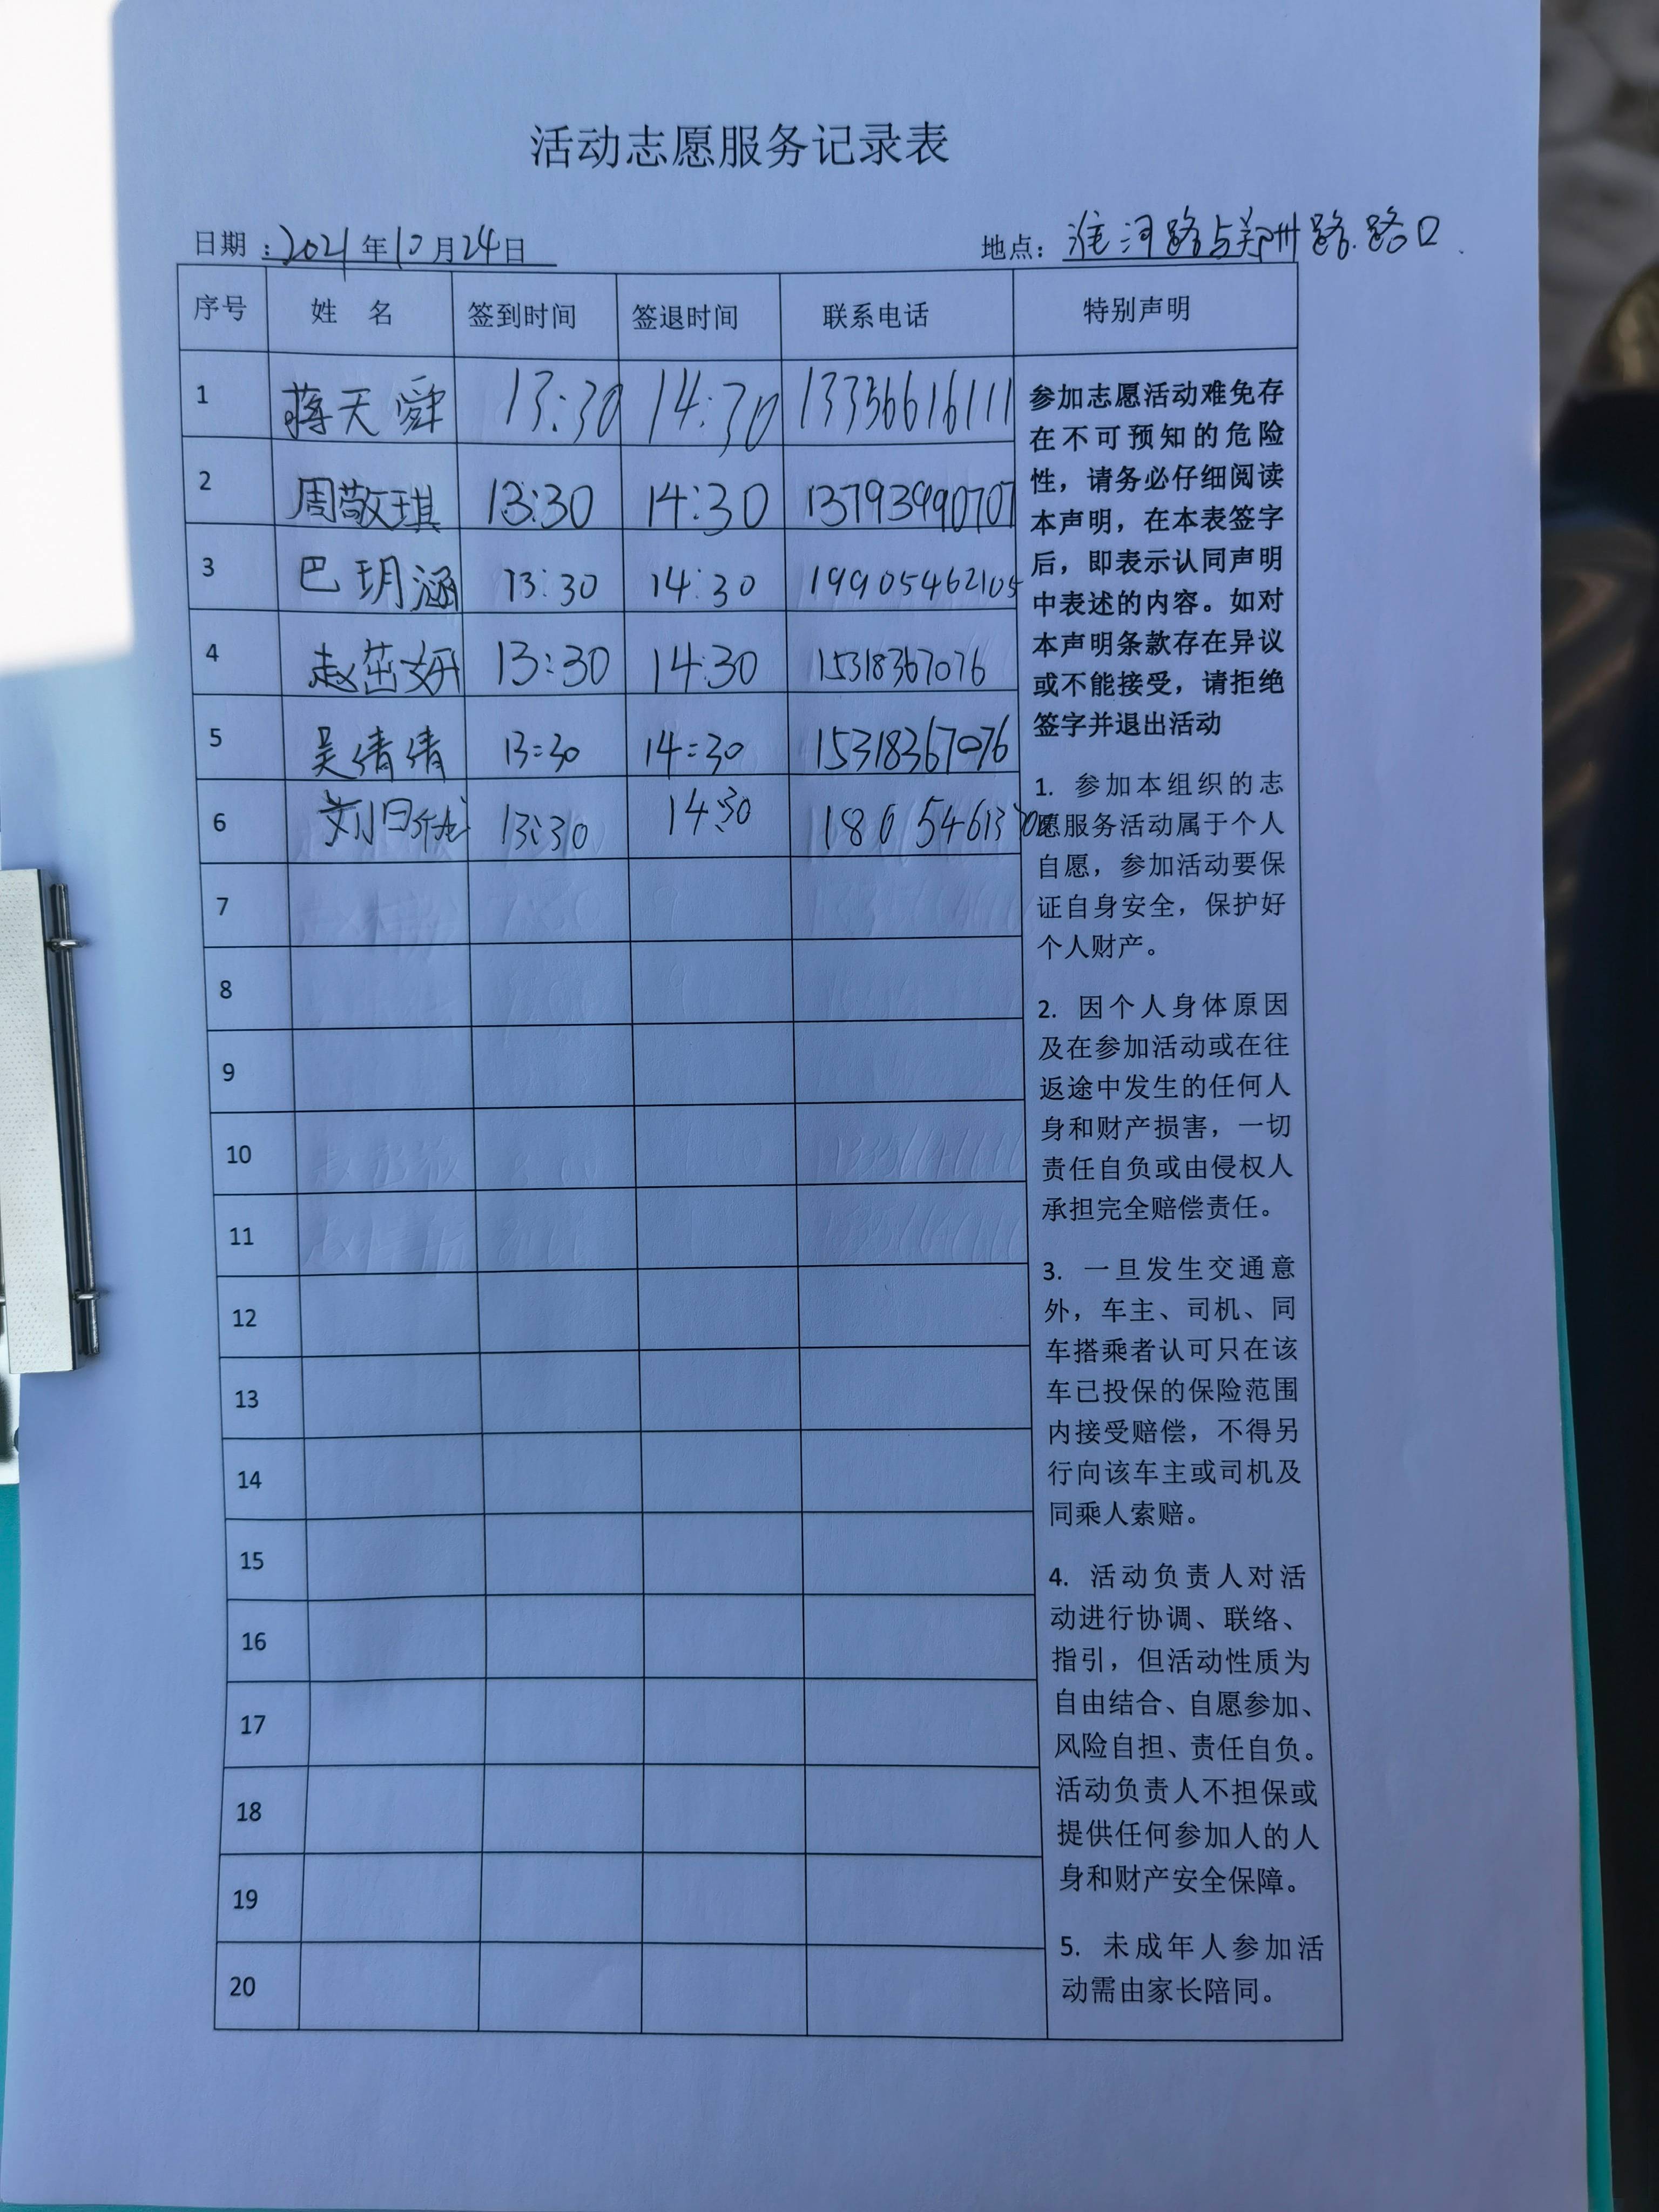 活动志愿服务记录表
日期：2021年10月24日 地点：淮河路与郑州路路口
序号 姓 名 签到时间 签退时间 联系电话 特别声明
1 蒋天舜 13:30 14:30 13356616111
2 周敬琪 13:30 14:30 13793990707
3 巴玥涵 13:30 14:30 19905462105
4 赵茁妍 13:30 14:30 15318367076
5 吴倩倩 13:30 14:30 15318367076
6 刘曰优 13:30 14:30
7
8
9
10
11
12
13
14
15
16
17
18
19
20
参加志愿活动难免存
在不可预知的危险
性，请务必仔细阅读
本声明，在本表签字
后，即表示认同声明
中表述的内容。如对
本声明条款存在异议
或不能接受，请拒绝
签字并退出活动
1. 参加本组织的志
愿服务活动属于个人
自愿，参加活动要保
证自身安全，保护好
个人财产。
2. 因个人身体原因
及在参加活动或在往
返途中发生的任何人
身和财产损害，一切
责任自负或由侵权人
承担完全赔偿责任。
3. 一旦发生交通意
外，车主、司机、同
车搭乘者认可只在该
车已投保的保险范围
内接受赔偿，不得另
行向该车主或司机及
同乘人索赔。
4. 活动负责人对活
动进行协调、联络、
指引，但活动性质为
自由结合、自愿参加、
风险自担、责任自负。
活动负责人不担保或
提供任何参加人的人
身和财产安全保障。
5. 未成年人参加活
动需由家长陪同。